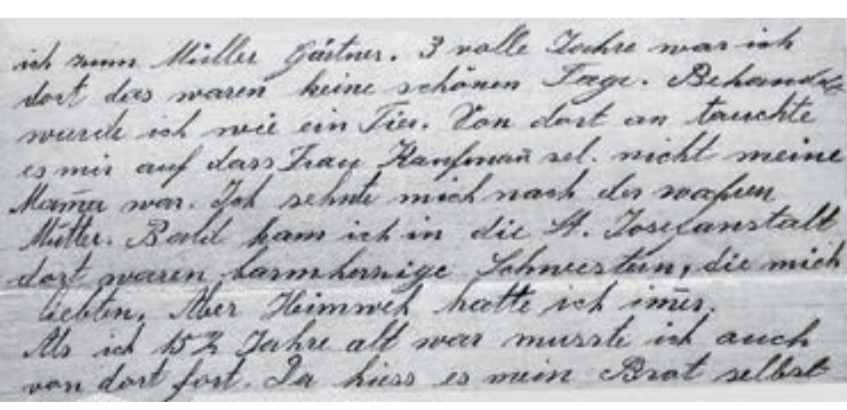 ich zum Müller Gärtner. 3 volle Jahre war ich
dort das waren keine schönen Tage. Behandelt
wurde ich wie ein Tier. Von dort an tauchte
es mir auf dass Frau Kaufman̄ sel. nicht meine
Mam̄a war. Ich sehnte mich nach der wahren
Mutter. Bald kam ich in die St. Josefanstalt
dort waren barmherzige Schwestern, die mich
liebten. Aber Heimweh hatte ich im̄er.
Als ich 15½ Jahre alt war musste ich auch
von dort fort. Da hiess es mein Brot selbst